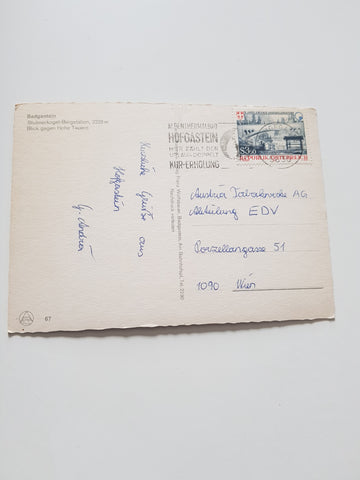 Badgastein
Stubnerkogel-Bergstation, 2239 m
Blick gegen Hohe Tauern
Herzliche Grüße aus
Hofgastein
IM THERMALBAD
HOFGASTEIN
HIER ZÄHLT DER
URLAUB DOPPELT
KUR-ERHOLUNG
REPUBLIK ÖSTERREICH
Austria Tabakwerke AG
Abteilung EDV
Porzellangasse 51
1090 Wien
67